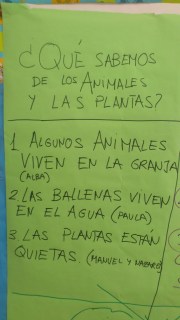 ¿QUÉ SABEMOS
DE LOS ANIMALES
Y LAS PLANTAS?
1 ALGUNOS ANIMALES
VIVEN EN LA GRANJA
(ALBA)
2. LAS BALLENAS VIVEN
EN EL AGUA (PAULA)
3. LAS PLANTAS ESTÁN
QUIETAS. (MANUEL Y